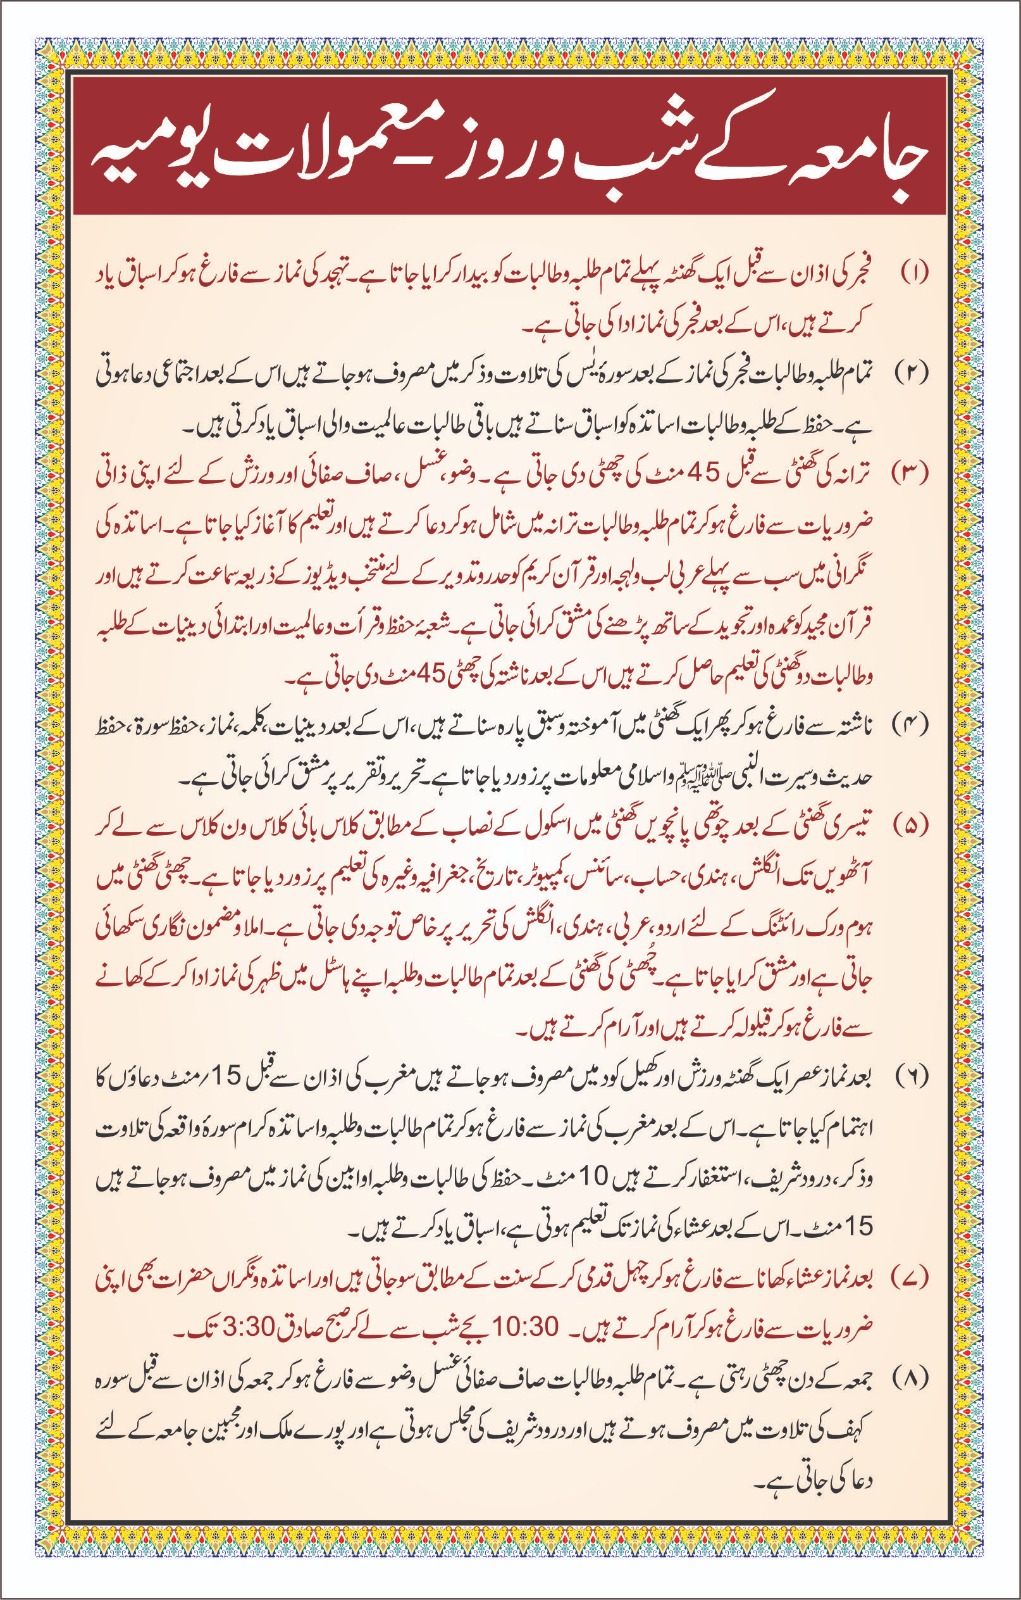 جامعہ کے شب و روز ۔ معمولات یومیہ
(۱) فجر کی اذان سے قبل ایک گھنٹہ پہلے تمام طلبہ و طالبات کو بیدار کرایا جاتا ہے۔ تہجد کی نماز سے فارغ ہوکر اسباق یاد
کرتے ہیں، اس کے بعد فجر کی نماز ادا کی جاتی ہے۔
(۲) تمام طلبہ و طالبات فجر کی نماز کے بعد سورۂ یٰس کی تلاوت و ذکر میں مصروف ہوجاتے ہیں اس کے بعد اجتماعی دعا ہوتی
ہے۔ حفظ کے طلبہ و طالبات اساتذہ کو اسباق سناتے ہیں باقی طالبات عالمیت والی اسباق یاد کرتی ہیں۔
(۳) ترانہ کی گھنٹی سے قبل 45 منٹ کی چھٹی دی جاتی ہے۔ وضو، غسل، صاف صفائی اور ورزش کے لئے اپنی ذاتی
ضروریات سے فارغ ہوکر تمام طلبہ و طالبات ترانہ میں شامل ہوکر دعا کرتے ہیں اور تعلیم کا آغاز کیا جاتا ہے۔ اساتذہ کی
نگرانی میں سب سے پہلے عربی لب ولہجہ اور قرآن کریم کو حدر و تدویر کے لئے منتخب ویڈیوز کے ذریعہ سماعت کرتے ہیں اور
قرآن مجید کو عمدہ اور تجوید کے ساتھ پڑھنے کی مشق کرائی جاتی ہے۔ شعبۂ حفظ و قرأت و عالمیت اور ابتدائی دینیات کے طلبہ
و طالبات دو گھنٹی کی تعلیم حاصل کرتے ہیں اس کے بعد ناشتہ کی چھٹی 45 منٹ دی جاتی ہے۔
(۴) ناشتہ سے فارغ ہوکر پھر ایک گھنٹی میں آموختہ و سبق پارہ سناتے ہیں، اس کے بعد دینیات، کلمہ، نماز، حفظ سورۃ، حفظ
حدیث و سیرت النبی ﷺ و اسلامی معلومات پر زور دیا جاتا ہے۔ تحریر و تقریر پر مشق کرائی جاتی ہے۔
(۵) تیسری گھنٹی کے بعد چوتھی پانچویں گھنٹی میں اسکول کے نصاب کے مطابق کلاس بائی کلاس ون کلاس سے لے کر
آٹھویں تک انگلش، ہندی، حساب، سائنس، کمپیوٹر، تاریخ، جغرافیہ وغیرہ کی تعلیم پر زور دیا جاتا ہے۔ چھٹی گھنٹی میں
ہوم ورک رائٹنگ کے لئے اردو، عربی، ہندی، انگلش کی تحریر پر خاص توجہ دی جاتی ہے۔ املا و مضمون نگاری سکھائی
جاتی ہے اور مشق کرایا جاتا ہے۔ چُھٹی کی گھنٹی کے بعد تمام طالبات و طلبہ اپنے ہاسٹل میں ظہر کی نماز ادا کرکے کھانے
سے فارغ ہوکر قیلولہ کرتے ہیں اور آرام کرتے ہیں۔
(۶) بعد نماز عصر ایک گھنٹہ ورزش اور کھیل کود میں مصروف ہوجاتے ہیں مغرب کی اذان سے قبل 15؍منٹ دعاؤں کا
اہتمام کیا جاتا ہے۔ اس کے بعد مغرب کی نماز سے فارغ ہوکر تمام طالبات و طلبہ و اساتذہ کرام سورۂ واقعہ کی تلاوت
و ذکر، درود شریف، استغفار کرتے ہیں 10 منٹ۔ حفظ کی طالبات و طلبہ اوابین کی نماز میں مصروف ہوجاتے ہیں
15 منٹ۔ اس کے بعد عشاء کی نماز تک تعلیم ہوتی ہے، اسباق یاد کرتے ہیں۔
(۷) بعد نماز عشاء کھانا سے فارغ ہوکر چہل قدمی کرکے سنت کے مطابق سوجاتی ہیں اور اساتذہ و نگراں حضرات بھی اپنی
ضروریات سے فارغ ہوکر آرام کرتے ہیں۔ 10:30 بجے شب سے لے کر صبح صادق 3:30 تک۔
(۸) جمعہ کے دن چھٹی رہتی ہے۔ تمام طلبہ و طالبات صاف صفائی غسل وضو سے فارغ ہوکر جمعہ کی اذان سے قبل سورہ
کہف کی تلاوت میں مصروف ہوتے ہیں اور درود شریف کی مجلس ہوتی ہے اور پورے ملک اور محبین جامعہ کے لئے
دعا کی جاتی ہے۔